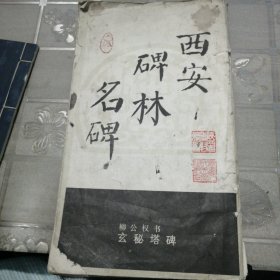 西安
碑林
名碑
柳公权书
玄秘塔碑